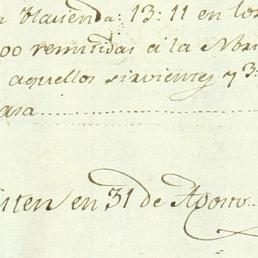 Hacienda: 13: 11 en los
00 remitidas a la
aquellos sirvientes y 3:

en 31 de Agosto